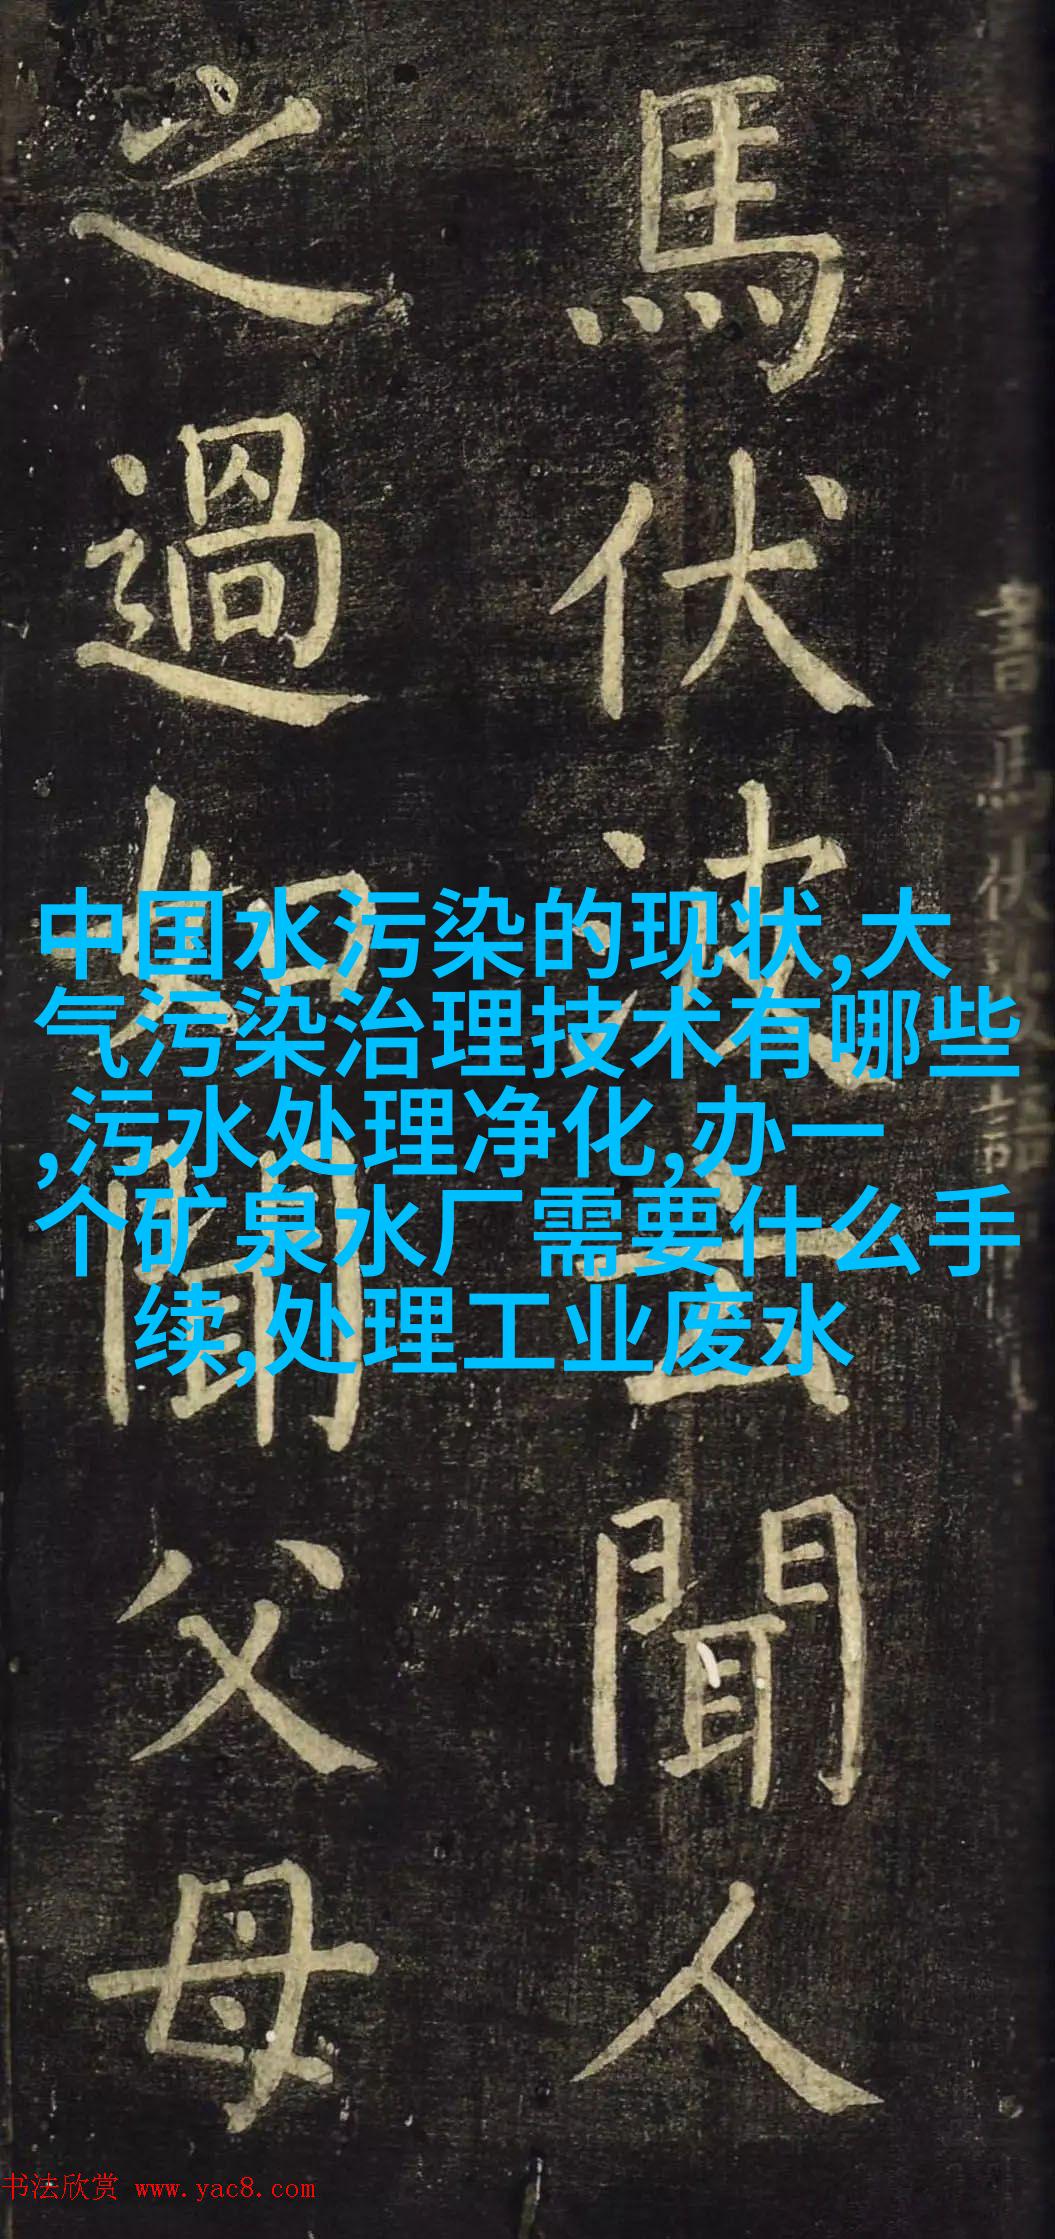 書馬伏
馬伏波云聞人
之過如聞父母
中国水污染的现状,大
气污染治理技术有哪些
,污水处理净化,办一
个矿泉水厂需要什么手
续,处理工业废水
书法欣赏 www.yac8.com